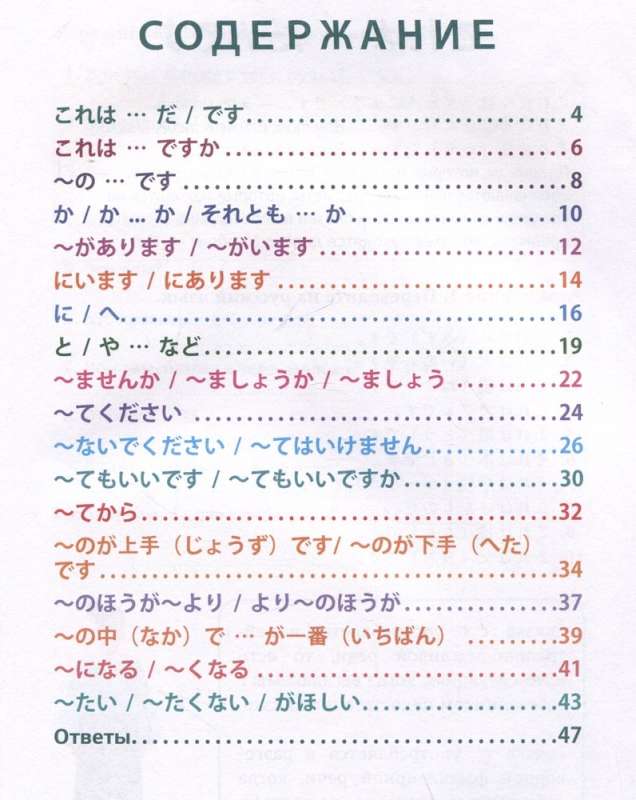 СОДЕРЖАНИЕ
これは … だ / です 4
これは … ですか 6
〜の … です 8
か / か ... か / それとも … か 10
〜があります / 〜がいます 12
にいます / にあります 14
に / へ 16
と / や … など 19
〜ませんか / 〜ましょうか / 〜ましょう 22
〜てください 24
〜ないでください / 〜てはいけません 26
〜てもいいです / 〜てもいいですか 30
〜てから 32
〜のが上手（じょうず）です/ 〜のが下手（へた）
です 34
〜のほうが〜より / より〜のほうが 37
〜の中（なか）で … が一番（いちばん） 39
〜になる / 〜くなる 41
〜たい / 〜たくない / がほしい 43
Ответы 47